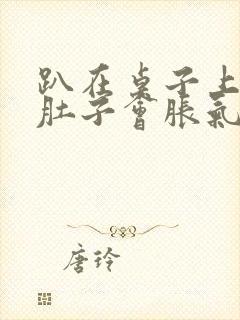 趴在桌子上
肚子會脹氣
唐玲